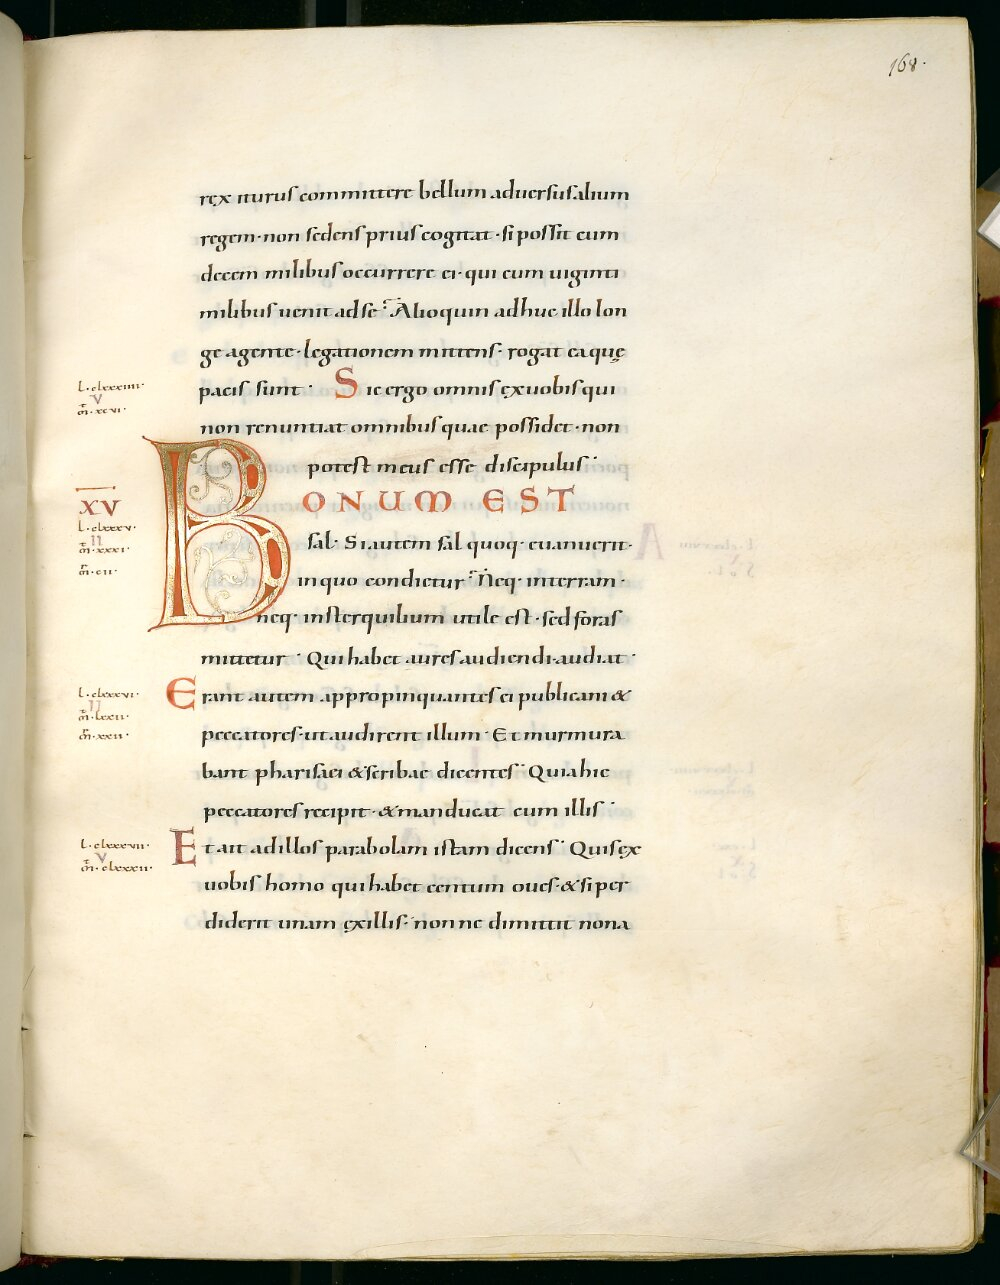 168.
ręx iturus committere bellum aduersus alium
regem · non sedens prius cogitat · si possit cum
decem milibus occurrere ei · qui cum uiginti
milibus uenit ad se · Alioquin adhuc illo lon
ge agente · legationem mittens · rogat ea quę
L · clxxxiiii ·
V
m̄ · xcvi ·
pacis sunt · Sic ergo omnis ęx uobis qui
non renuntiat omnibus quae possidet · non
potest meus esse discipulus ·
XV
L · clxxxv ·
II
m̄ · xxxi ·
m̄ · cii ·
BONUM EST
sal · Si autem sal quoq · euanuerit ·
in quo condietur · Neq · in terram ·
neq · in sterquilium utile est · sed foras
mittetur · Qui habet aures audiendi · audiat ·
L · clxxxvi ·
II
m̄ · lxxii ·
m̄ · xxii ·
Erant autem appropinquantes ei publicani &
peccatores · ut audirent illum · Et murmura
bant pharisaei & scribae dicentes · Quia hic
peccatores recipit · & manducat cum illis ·
L · clxxxvii ·
V
m̄ · clxxxii ·
Et ait ad illos parabolam istam dicens · Quis ęx
uobis homo qui habet centum oues · & si per
diderit unam ęx illis · nonne dimittit nona